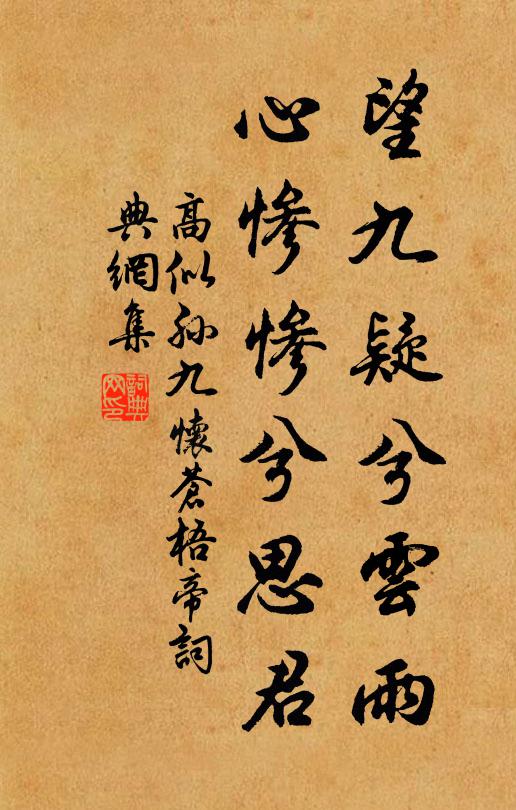 望九疑兮雲雨
心慘慘兮思君
高似孙九懷蒼梧帝詞
典網集
詞典網印